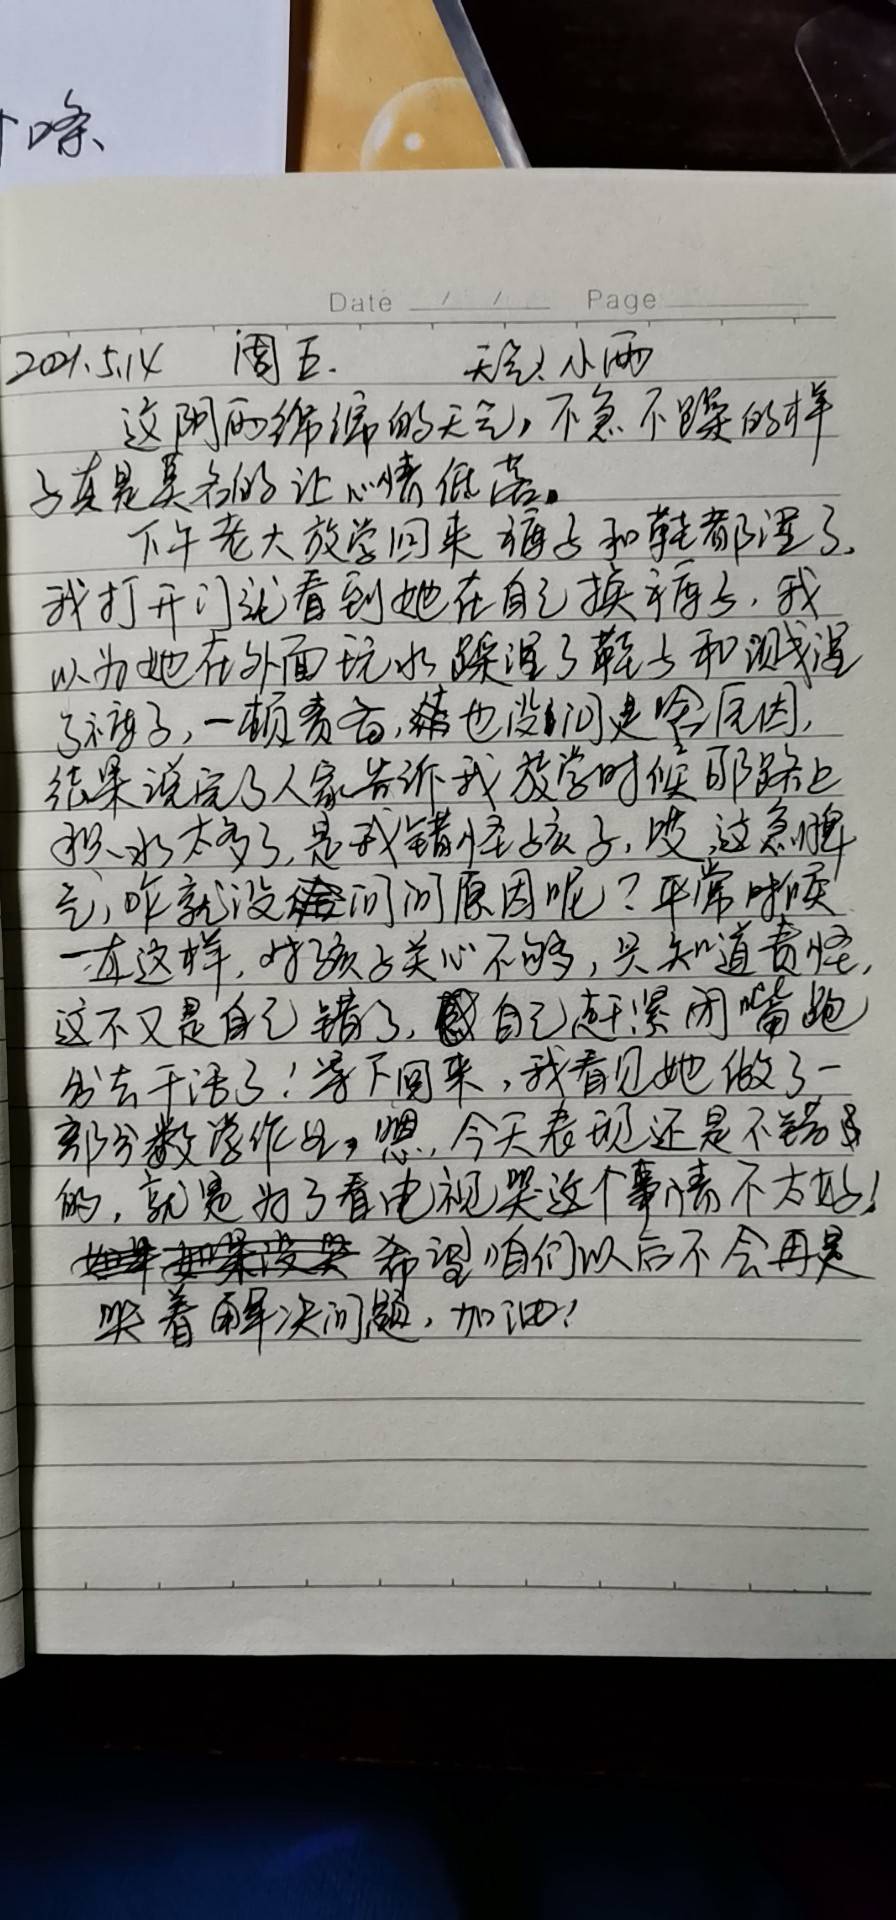 条
Date / / Page
2021.5.14 周五. 天气:小雨
这阴雨绵绵的天气,不急不躁的样
子真是莫名的让心情低落。
下午老大放学回来裤子和鞋都湿了,
我打开门就看到她在自己换裤子,我
以为她在外面玩水踩湿了鞋子和溅湿
了裤子,一顿责备,也没问是啥原因,
结果说完了人家告诉我放学时候那路上
积水太多了,是我错怪孩子,哎,这急脾
气,咋就没问问原因呢?平常时候
一直这样,对孩子关心不够,只知道责怪,
这不又是自己错了,自己赶紧闭嘴跑
出去干活了!等下回来,我看见她做了一
部分数学作业,嗯,今天表现还是不错
的,就是为了看电视哭这个事情不太好!
如果没哭 希望咱们以后不会再是
哭着解决问题,加油!